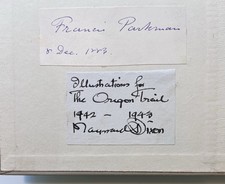 Francis Parkman
8 Dec. 1886
Illustrations for
The Oregon Trail
1942 - 1943
Maynard Dixon